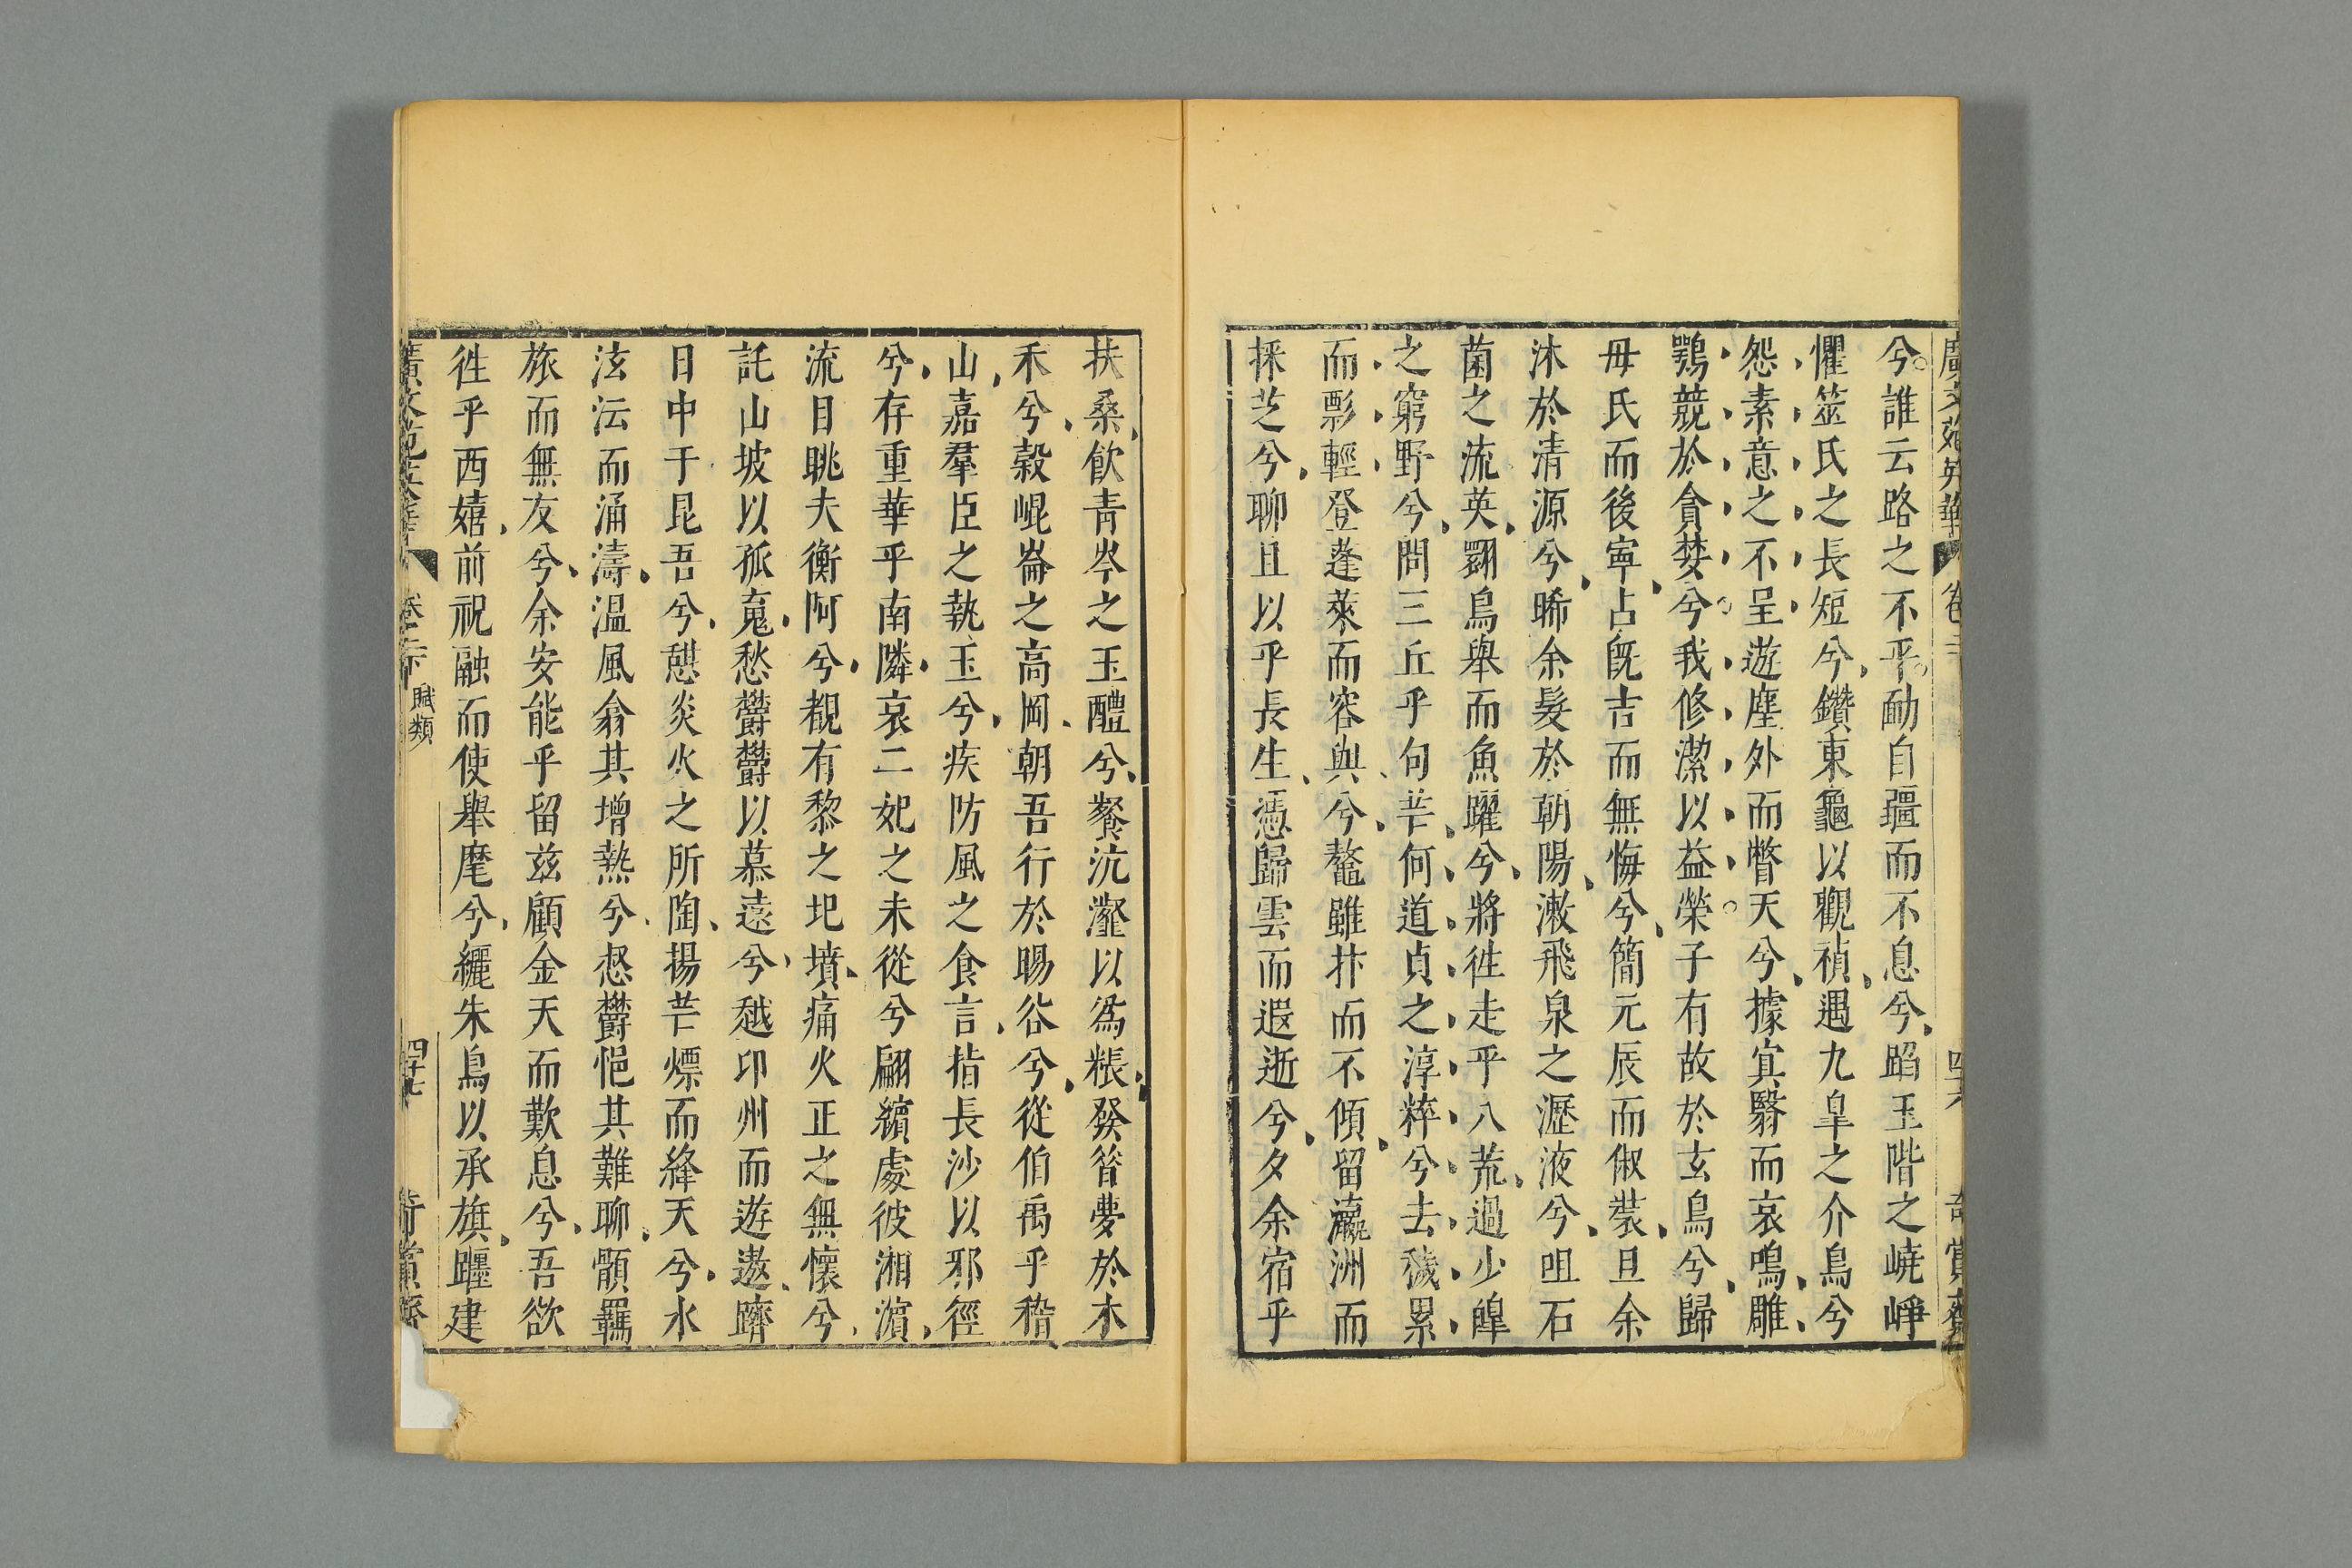 廣文苑英華 卷二 四六 奇賞齋
兮誰云路之不平勔自彊而不息兮蹈玉階之嶢崢
懼筮氏之長短兮鑽東龜以觀禎遇九皐之介鳥兮
怨素意之不呈遊塵外而瞥天兮據冥翳而哀鳴雕
鶚競於貪婪兮我修潔以益榮子有故於玄鳥兮歸
毋氏而後寧占旣吉而無悔兮簡元辰而俶裝旦余
沐於清源兮晞余髮於朝陽漱飛泉之瀝液兮咀石
菌之流英翾鳥舉而魚躍兮將徃走乎八荒過少皥
之窮野兮問三丘乎句芒何道貞之淳粹兮去穢累
而票輕登蓬萊而容與兮鼇雖抃而不傾留瀛洲而
採芝兮聊且以乎長生憑歸雲而遐逝兮夕余宿乎
扶桑飲青岑之玉醴兮餐沆瀣以爲粻發昝夢於木
禾兮穀崐崙之高岡朝吾行於暘谷兮從伯禹乎稽
山嘉羣臣之執玉兮疾防風之食言指長沙以邪徑
兮存重華乎南隣哀二妃之未從兮翩繽處彼湘濵
流目眺夫衡阿兮覩有黎之圯墳痛火正之無懷兮
託山坡以孤䰟愁欝欝以慕遠兮越卭州而遊遨躋
日中于昆吾兮憇炎火之所陶揚芒熛而絳天兮水
泫沄而涌濤溫風翕其增熱兮惄欝悒其難聊顝羈
旅而無友兮余安能乎留茲顧金天而歎息兮吾欲
徃乎西嬉前祝融而使舉麾兮纚朱鳥以承旗躔建
廣文苑英華 卷二下 賦類 四七 奇賞齋